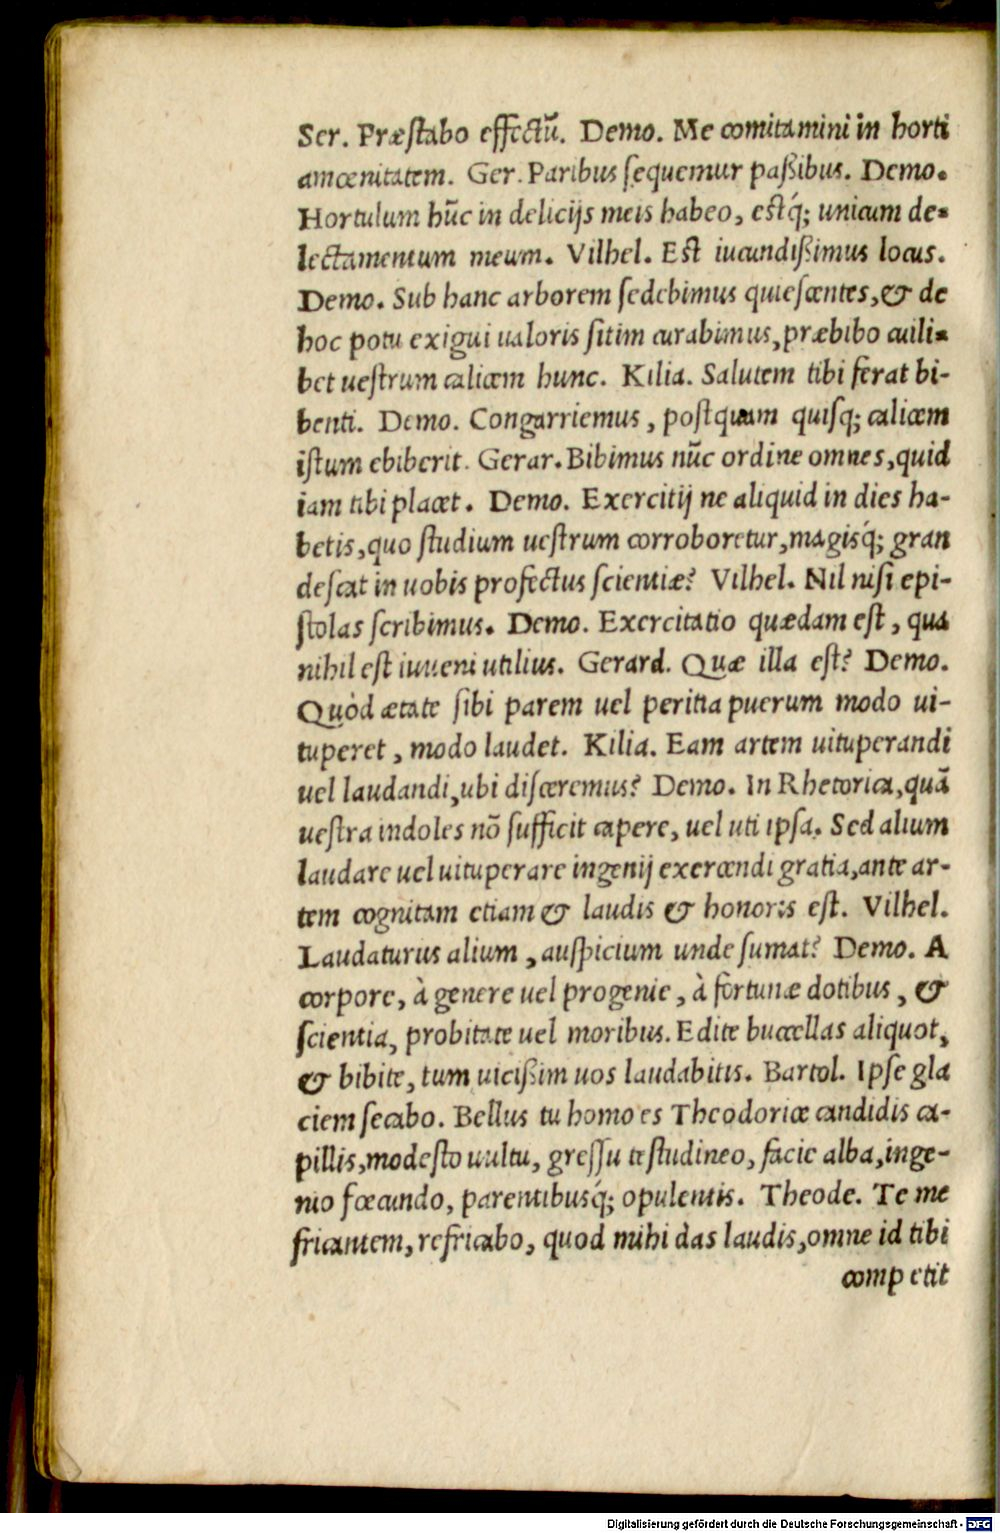 Ser. Præſtabo effectũ. Demo. Me comitamini in horti
amœnitatem. Ger. Paribus ſequemur paßibus. Demo.
Hortulum hũc in delicijs meis habeo, eſtq́; unicum de-
lectamentum meum. Vilhel. Eſt iucundißimus locus.
Demo. Sub hanc arborem ſedebimus quieſcentes, & de
hoc potu exigui ualoris ſitim curabimus, præbibo cuili-
bet ueſtrum calicem hunc. Kilia. Salutem tibi ferat bi-
benti. Demo. Congarriemus, poſtquam quiſq; calicem
iſtum ebiberit. Gerar. Bibimus nũc ordine omnes, quid
iam tibi placet. Demo. Exercitij ne aliquid in dies ha-
betis, quo ſtudium ueſtrum corroboretur, magisq́; gran
deſcat in uobis profectus ſcientiæ? Vilhel. Nil niſi epi-
ſtolas ſcribimus. Demo. Exercitatio quædam eſt, qua
nihil eſt iuueni utilius. Gerard. Quæ illa eſt? Demo.
Quòd ætate ſibi parem uel peritia puerum modo ui-
tuperet, modo laudet. Kilia. Eam artem uituperandi
uel laudandi, ubi diſceremus? Demo. In Rhetorica, quã
ueſtra indoles nõ ſufficit capere, uel uti ipſa. Sed alium
laudare uel uituperare ingenij exercendi gratia, ante ar-
tem cognitam etiam & laudis & honoris eſt. Vilhel.
Laudaturus alium, auſpicium unde ſumat? Demo. A
corpore, à genere uel progenie, à fortunæ dotibus, &
ſcientia, probitate uel moribus. Edite buccellas aliquot,
& bibite, tum uicißim uos laudabitis. Bartol. Ipſe gla
ciem ſecabo. Bellus tu homo es Theodorice candidis ca-
pillis, modeſto uultu, greſſu teſtudineo, facie alba, inge-
nio fœcundo, parentibusq́; opulentis. Theode. Te me
fricantem, refricabo, quod mihi das laudis, omne id tibi
competit
Digitalisierung gefördert durch die Deutsche Forschungsgemeinschaft - DFG